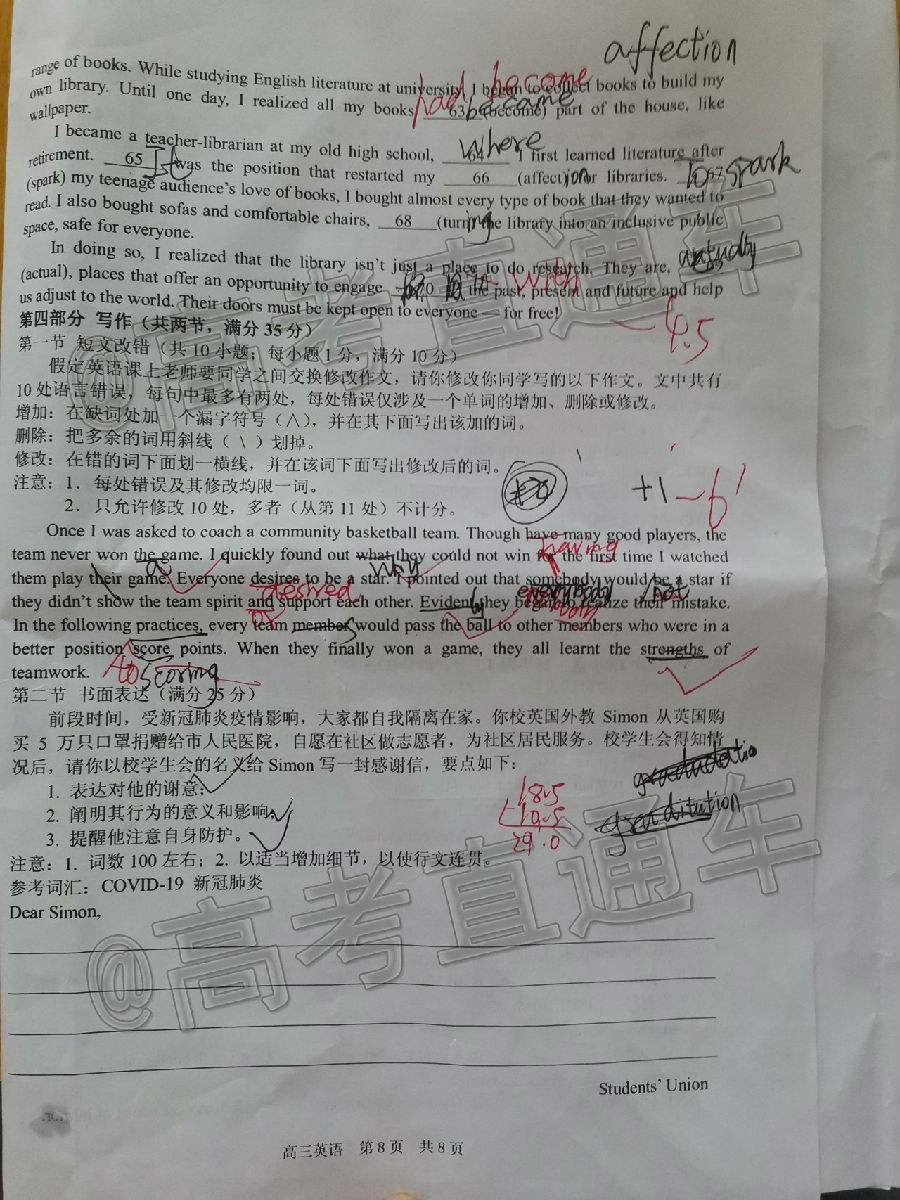 affection
range of books. While studying English literature at university, I began to collect books to build my
had become
own library. Until one day, I realized all my books 63 (become) part of the house, like
became
wallpaper.
where
I became a teacher-librarian at my old high school, 64 I first learned literature after
retirement. 65 was the position that restarted my 66 (affect) for libraries. 67
It
ion
To spark
(spark) my teenage audience's love of books, I bought almost every type of book that they wanted to
read. I also bought sofas and comfortable chairs, 68 (turn) the library into an inclusive public
ing
space, safe for everyone.
In doing so, I realized that the library isn't just a place to do research. They are,
actually
(actual), places that offer an opportunity to engage 70 the past, present and future and help
with
us adjust to the world. Their doors must be kept open to everyone — for free!
4.5
第四部分 写作（共两节，满分 35 分）
第一节 短文改错（共 10 小题；每小题 1 分，满分 10 分）
假定英语课上老师要同学之间交换修改作文，请你修改你同学写的以下作文。文中共有
10 处语言错误，每句中最多有两处，每处错误仅涉及一个单词的增加、删除或修改。
增加：在缺词处加一个漏字符号（∧），并在其下面写出该加的词。
删除：把多余的词用斜线（\）划掉。
修改：在错的词下面划一横线，并在该词下面写出修改后的词。
注意：1．每处错误及其修改均限一词。
+1 －6'
2．只允许修改 10 处，多者（从第 11 处）不计分。
Once I was asked to coach a community basketball team. Though have many good players, the
having
team never won the game. I quickly found out what they could not win for the first time I watched
a
why
them play their game. Everyone desires to be a star. I pointed out that somebody would be a star if
desired
everybody
not
they didn't show the team spirit and support each other. Evident they began to realize their mistake.
or
ly
In the following practices, every team member would pass the ball to other members who were in a
better position score points. When they finally won a game, they all learnt the strengths of
to
scoring
teamwork.
第二节 书面表达（满分 25 分）
前段时间，受新冠肺炎疫情影响，大家都自我隔离在家。你校英国外教 Simon 从英国购
买 5 万只口罩捐赠给市人民医院，自愿在社区做志愿者，为社区居民服务。校学生会得知情
况后，请你以校学生会的名义给 Simon 写一封感谢信，要点如下：
1. 表达对他的谢意；
2. 阐明其行为的意义和影响；
3. 提醒他注意自身防护。
18.5
10.5
29.0
注意：1. 词数 100 左右；2. 以适当增加细节，以使行文连贯。
参考词汇：COVID-19 新冠肺炎
Dear Simon,
@高考直通车
@高考直通车
Students' Union
高三英语 第 8 页 共 8 页